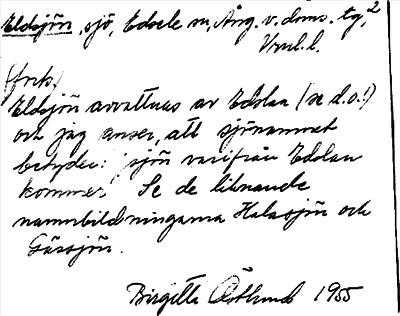 Eldsjön, sjö, Edsele sn, Ång. v. doms. tg,2
Vrml. l.
(forts.)
Eldsjön avvattnas av Edslan (se d.o.!)
och jag anser, att sjönamnet
betyder: sjön varifrån Edslan
kommer. Se de liknande
namnbildningarna Halasjön och
Gässjön.
Birgitta Östlund 1955